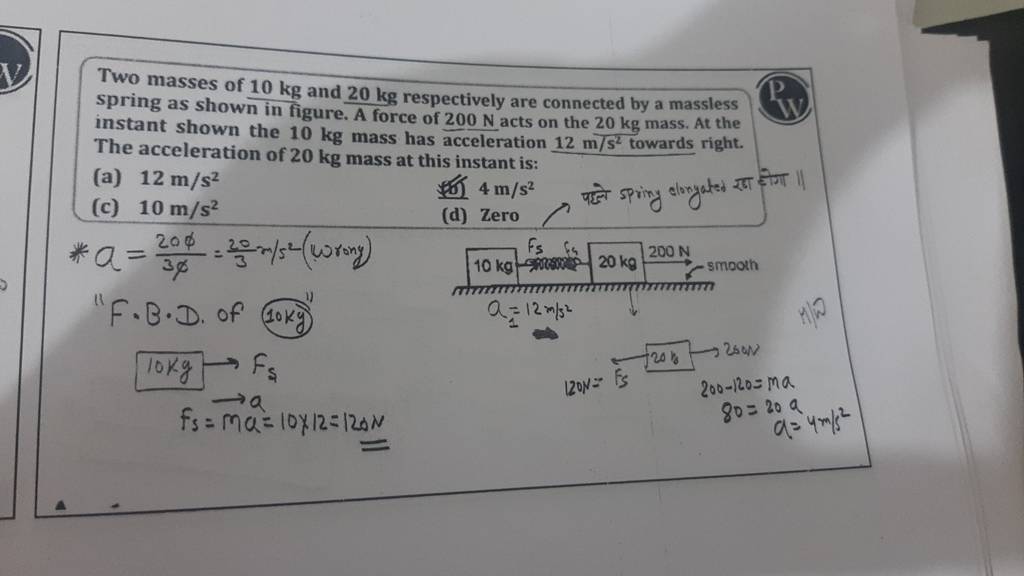 Two masses of 10 kg and 20 kg respectively are connected by a massless
spring as shown in figure. A force of 200 N acts on the 20 kg mass. At the
instant shown the 10 kg mass has acceleration 12 m/s² towards right.
The acceleration of 20 kg mass at this instant is:
(a) 12 m/s²
(b) 4 m/s²
(c) 10 m/s²
(d) Zero
PW
W
पहले spring elongated रहा होगा ||
* a = 200/30 = 20/3 m/s² (wrong)
"F.B.D. of 10kg"
10kg → Fs
→ a
Fs = ma = 10×12 = 120N
Fs Fs
10 kg 20 kg 200 N
smooth
a₁ = 12 m/s²
120N = Fs 20 → 200N
200-120 = ma
80 = 20 a
a = 4 m/s²